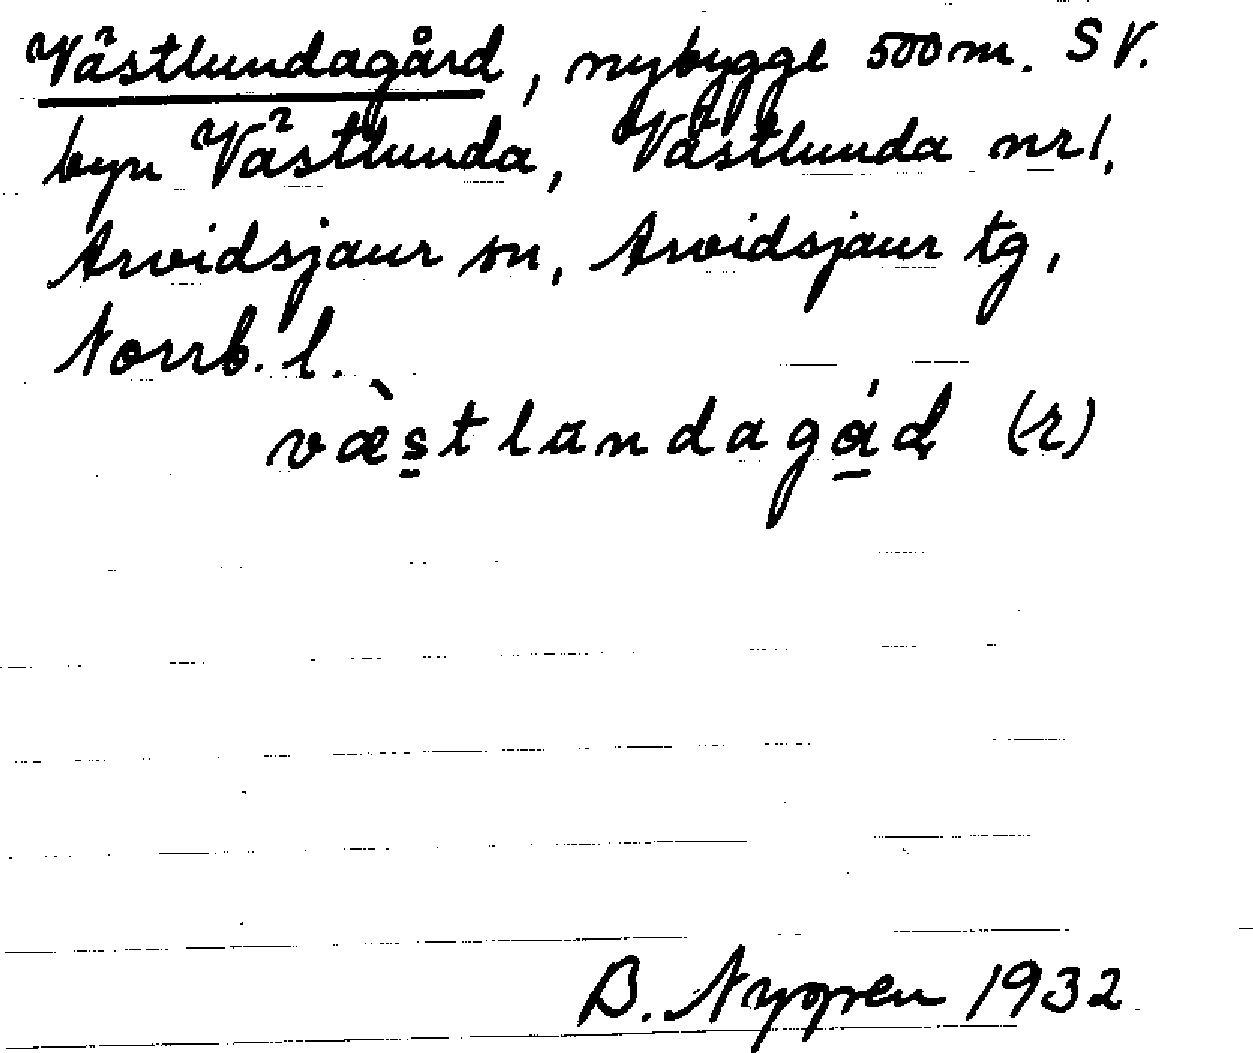 Västlundagård, nybygge 500 m. SV.
byn Västlunda, Västlunda nr 1,
Arvidsjaur sn, Arvidsjaur tg,
Norrb. l.
væ̀s̱tlandagá̱ḍ (-r)
B. Nygren 1932